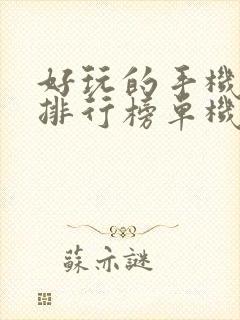 好玩的手機
排行榜单機
蘇亦謎